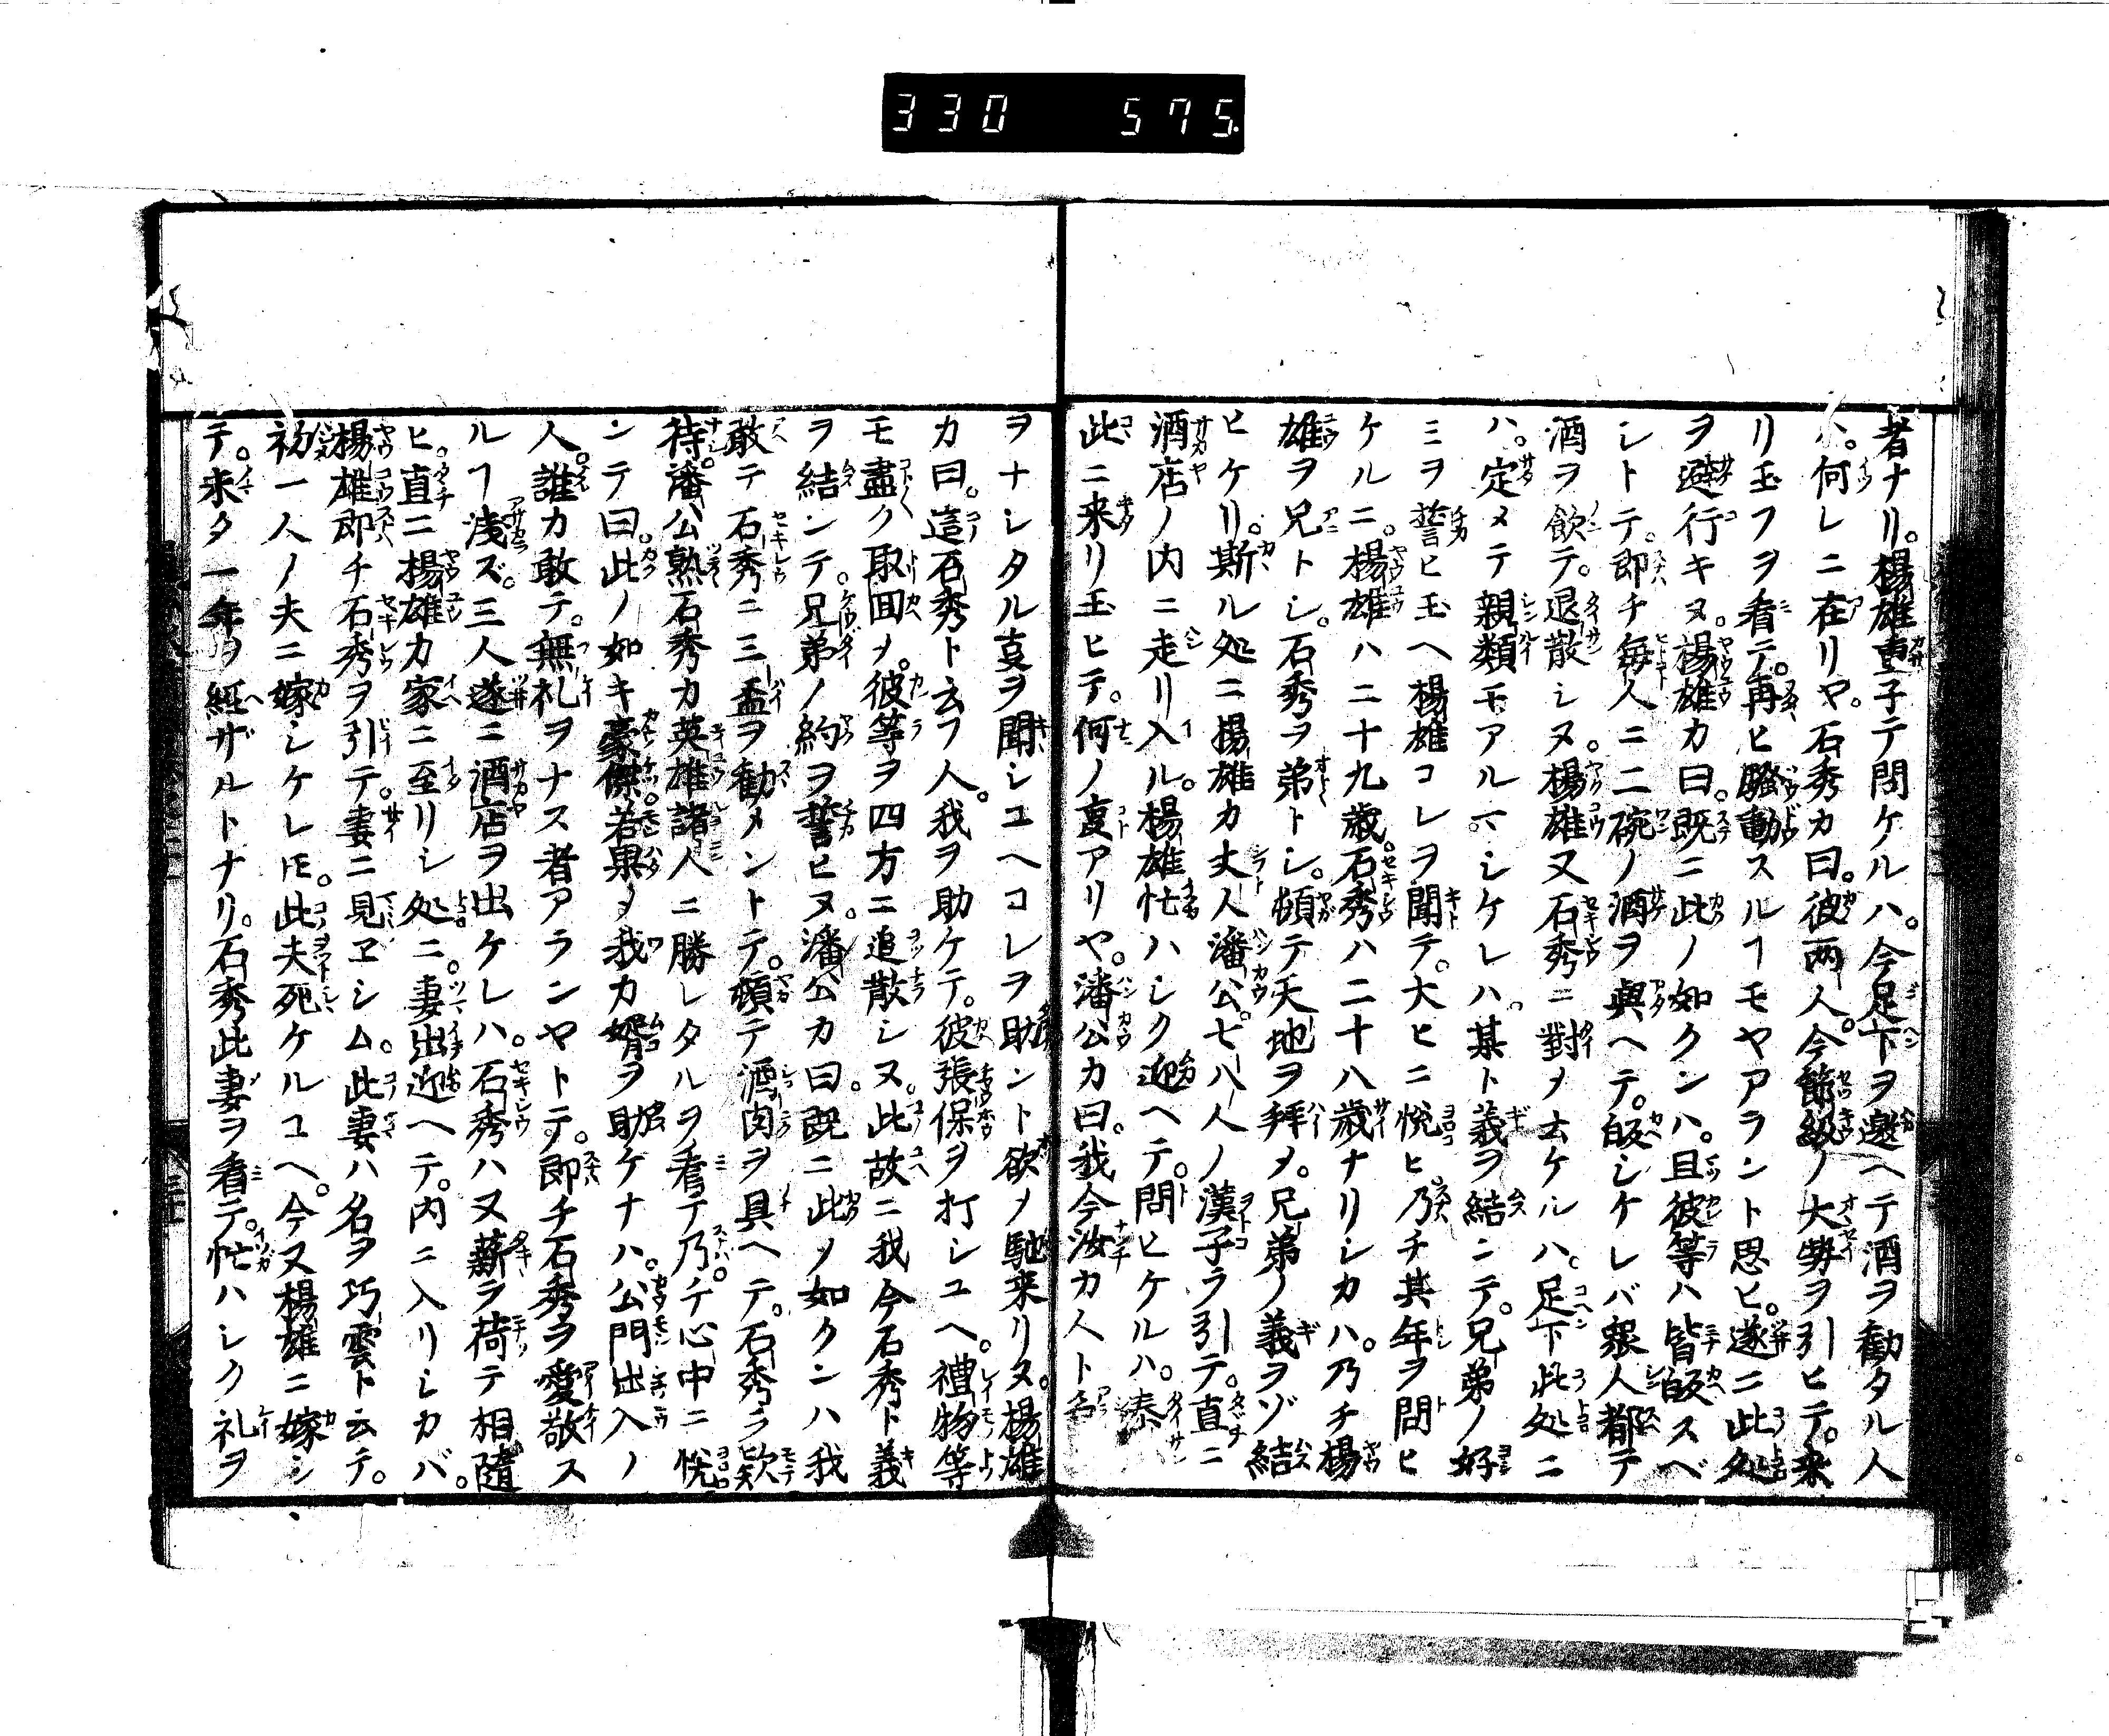 330 575.
者ナリ。楊雄重子テ問ケルハ。今足下ヲ邀ヘテ酒ヲ勸タル人
ハ。何レニ在リヤ。石秀カ曰。彼兩人。今節級ノ大勢ヲ引ヒテ。来
リ玉フヲ看テ。再ヒ騒動スルヿモヤアラント思ヒ。遂ニ此処
ヲ避行キヌ。楊雄カ曰。既ニ此ノ如クンハ。且彼等ハ皆皈スベ
シトテ。即チ毎人ニ二碗ノ酒ヲ與ヘテ。皈シケレバ衆人都テ
酒ヲ飲テ。退散シヌ。楊雄又石秀ニ對メ云ケルハ。足下此処ニ
ハ。定メテ親類モアルマシケレハ。某ト義ヲ結ンテ。兄弟ノ好
ミヲ誓ヒ玉ヘ楊雄コレヲ聞テ。大ヒニ悦ヒ乃チ其年ヲ問ヒ
ケルニ。楊雄ハ二十九歳。石秀ハ二十八歳ナリシカハ。乃チ楊
雄ヲ兄トシ。石秀ヲ弟トシ。頓テ天地ヲ拜メ。兄弟ノ義ヲゾ結
ヒケリ。斯ル処ニ楊雄カ丈人潘公。七八人ノ漢子ヲ引テ。直ニ
酒店ノ内ニ走リ入ル。楊雄忙ハシク迎ヘテ。問ヒケルハ。泰
此ニ来リ玉ヒテ。何ノ夏アリヤ。潘公カ曰。我今汝カ人ト
ヲナシタル夏ヲ聞シユヘコレヲ助ント欲メ馳来リヌ。楊雄
カ曰。這石秀ト云フ人。我ヲ助ケテ。彼張保ヲ打シユヘ。禮物等
モ盡ク取回メ。彼等ヲ四方ニ追散シヌ。此故ニ我今石秀ト義
ヲ結ンテ。兄弟ノ約ヲ誓ヒヌ。潘公カ曰。既ニ此ノ如クンハ我
敢テ石秀ニ三盃ヲ勸メントテ。頓テ酒肉ヲ具ヘテ。石秀ヲ欵
待。潘公熟石秀カ英雄諸人ニ勝レタルヲ看テ乃。チ心中ニ悦
ンテ曰。此ノ如キ豪傑。若果メ我カ婿ヲ助ケナハ。公門出入ノ
人。誰カ敢テ。無礼ヲナス者アランヤトテ。即チ石秀ヲ愛敬ス
ルヿ淺ズ。三人遂ニ酒店ヲ出ケレハ。石秀ハ又薪ヲ荷テ相隨
ヒ。直ニ楊雄カ家ニ至リシ処ニ。妻出迎ヘテ。内ニ入リシカバ。
楊雄即チ石秀ヲ引テ。妻ニ見ヱシム。此妻ハ名ヲ巧雲ト云テ。
初一人ノ夫ニ嫁シケレ𪜈。此夫死ケルユヘ。今又楊雄ニ嫁シ
テ。未タ一年ヲ經ザルトナリ。石秀此妻ヲ看テ。忙ハシク礼ヲ